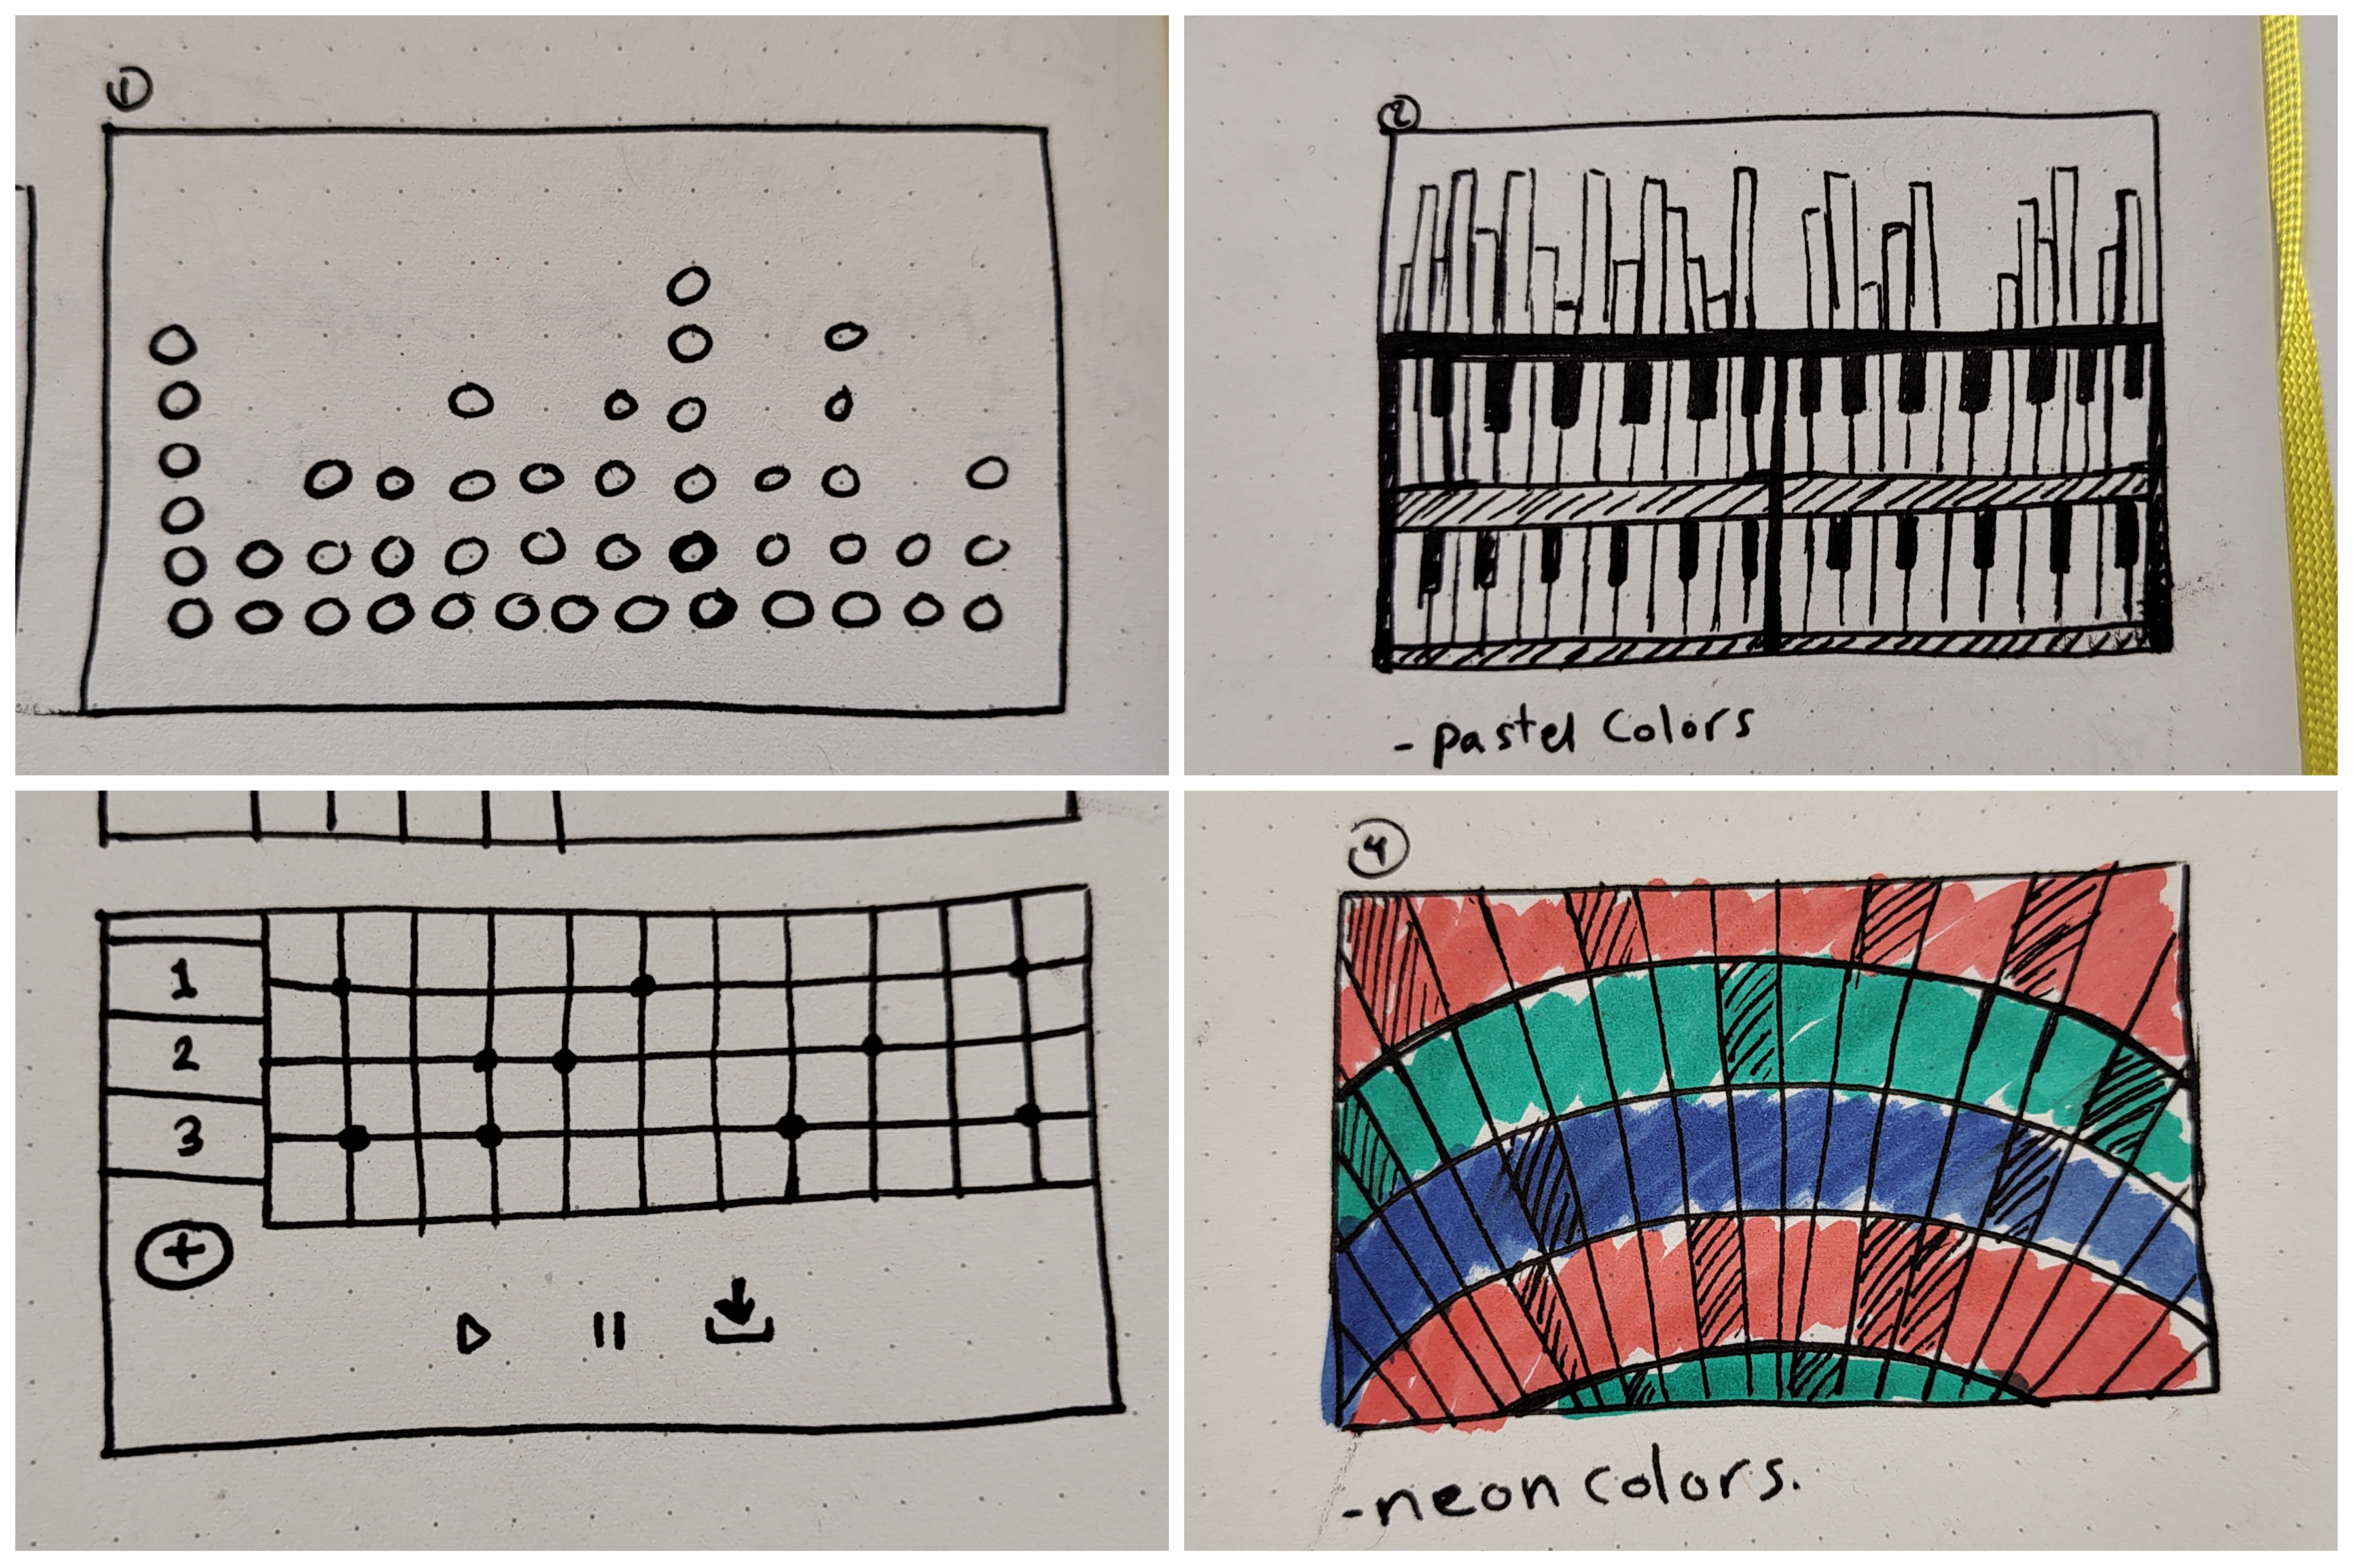 1
2
- pastel colors
1
2
3
+
4
- neon colors.